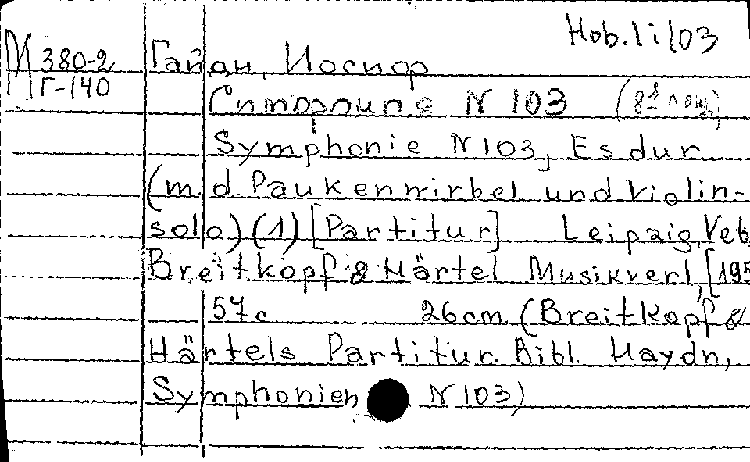 Hob.I:103
М 380-2 Гайдн, Иосиф
Г-140
Симфония N 103
Symphonie N 103, Es dur
(m. d Paukenwirbel und Violin-
solo) (1) [Partitur] Leipzig, Veb
Breitkopf & Härtel Musikverl, [195
57 с 26 cm (Breitkopf &
Härtels Partitur. Bibl. Haydn,
Symphonien N 103)